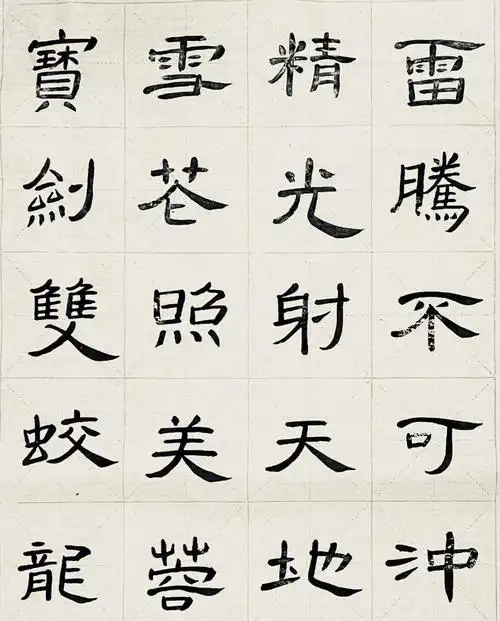 寶劍雙蛟龍
雪花照美蓉
精光射天地
雷騰不可冲